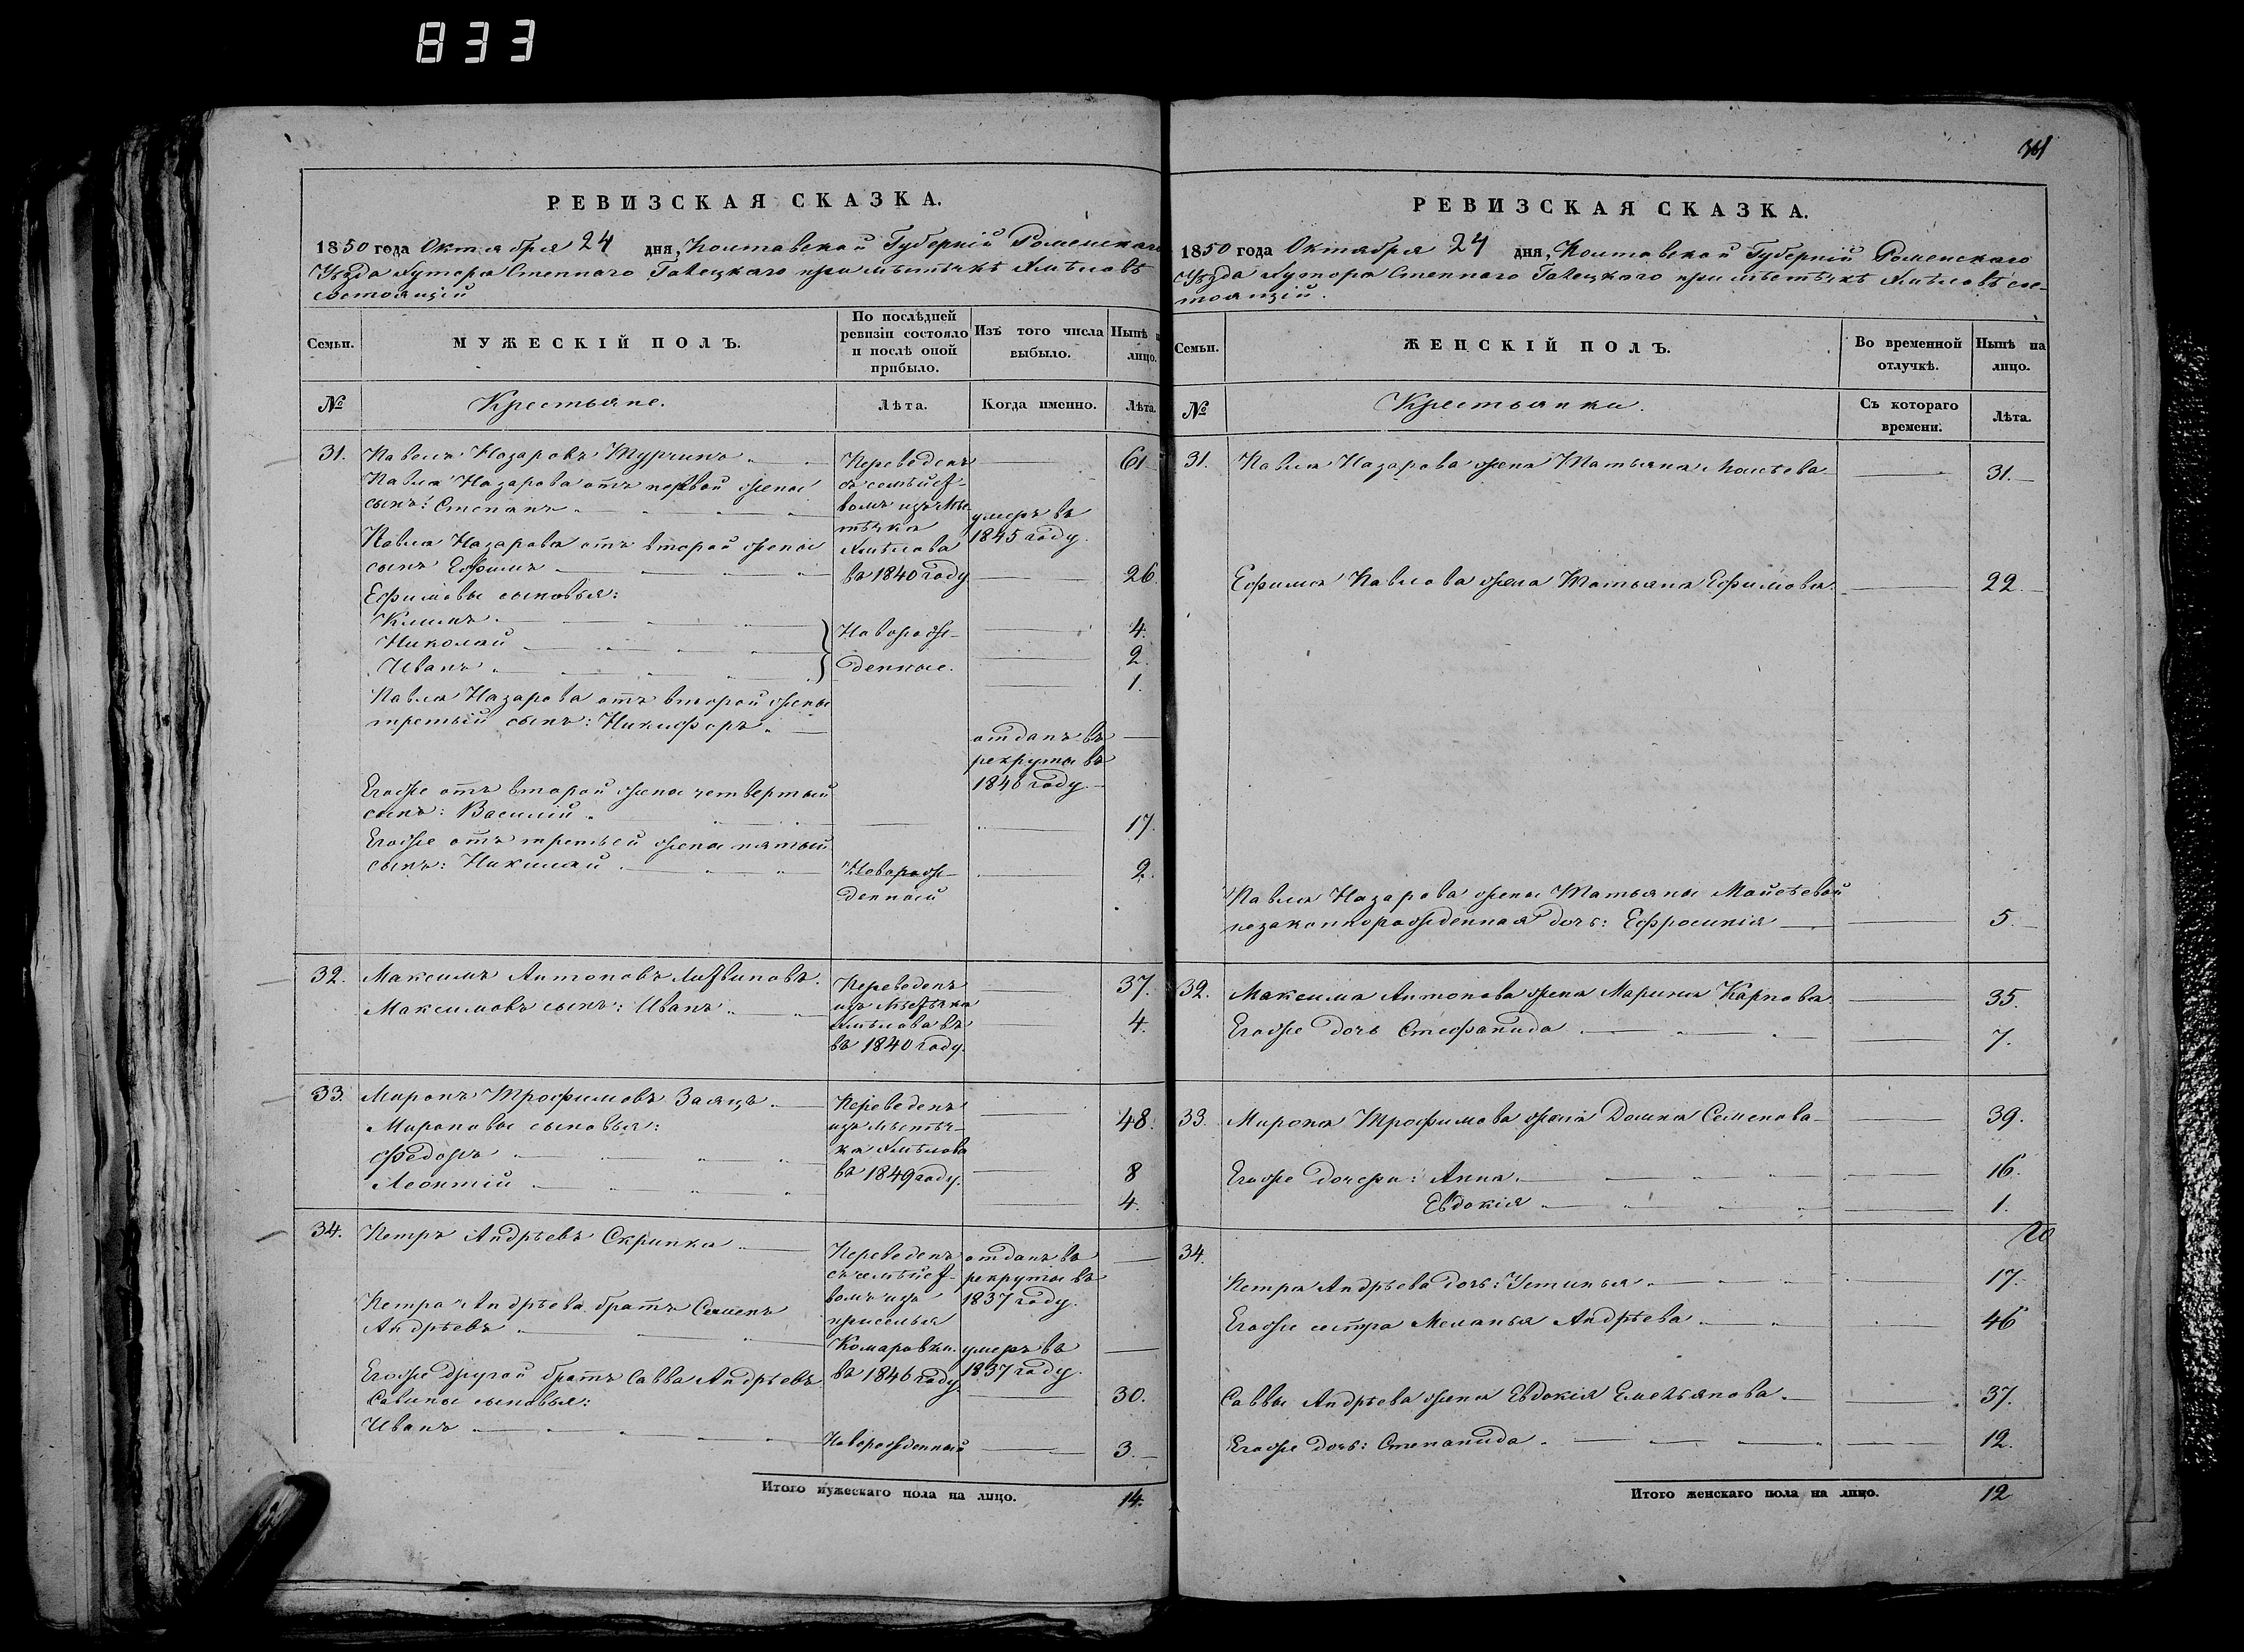 833
РЕВИЗСКАЯ СКАЗКА.
1850 года Октября 24 дня, Полтавской Губерніи Роменскаго
Уѣзда Хутора Степнаго при мѣстечкѣ Хмѣловѣ
состоящій
Семьи.
МУЖЕСКІЙ ПОЛЪ.
По послѣдней ревизіи состояло и послѣ оной прибыло.
Изъ того числа выбыло.
Нынѣ на лицо.
№
Крестьяне.
Лѣта.
Когда именно.
Лѣта.
31. Павелъ Назаровъ 61
Павла Назарова отъ первой жены
сынъ: Степанъ
умеръ въ 1845 году.
Переведенъ съ семѣйствомъ изъ мѣстѣчка Хмѣлова въ 1840 году
Павла Назарова отъ второй жены
сынъ Ефимъ 26
Ефимовы сыновья:
Климъ 4.
Николай 2.
Иванъ 1.
Новорожденные.
Павла Назарова отъ второй жены
третьий сынъ: Никифоръ
отданъ въ рекруты въ 1846 году.
Егоже отъ второй жены четвертый
сынъ: Василій 17.
Егоже отъ третьей жены пятый
сынъ: Николай 2.
Новорожденный
32. Максимъ Антоновъ Литвиновъ. 37.
Максимовъ сынъ: Иванъ 4.
Переведенъ изъ Мѣстѣчка Хмѣлова въ
въ 1840 году.
33. Миронъ Трофимовъ Заяцъ 48.
Мироновы сыновья:
Федоръ 8
Леонтій 4.
Переведенъ изъ мѣстѣчка Хмѣлова
въ 1849 году.
34. Петръ Андрѣевъ Скрипка
отданъ въ рекруты въ 1837 году.
Переведенъ съ семѣйствомъ изъ приселья Комаровки въ 1846 году
Петра Андрѣева братъ Семенъ
Андрѣевъ
умеръ въ 1837 году.
Егоже другой братъ Савва Андрѣевъ 30.
Савины сыновья:
Иванъ Новорожденный 3.
Итого мужескаго пола на лицо. 14.
РЕВИЗСКАЯ СКАЗКА.
1850 года Октября 24 дня, Полтавской Губерніи Роменскаго
Уѣзда Хутора Степнаго при мѣстѣчкѣ Хмѣловѣ сос-
тоящій.
Семьи.
ЖЕНСКІЙ ПОЛЪ.
Во временной отлучкѣ.
Нынѣ на лицо.
№
Крестьянки.
Съ котораго времени.
Лѣта.
31. Павла Назарова жена Татьяна Моисѣева 31.
Ефима Павлова жена Татьяна Ефимова. 22.
Павла Назарова жены Татьяны Мойсѣевой
незаконнорожденная дочь: Ефросинія 5.
32. Максима Антонова жена Марина Карпова 35.
Егоже дочь Стефанида 7.
33. Мирона Трофимова жена Домна Семенова 39.
Егоже дочери: Анна 16.
Евдокія 1.
34.
Петра Андрѣева дочь: Устинья 17.
Егоже сестра Меланья Андрѣева 46
Саввы Андрѣева жена Евдокія Емельянова 37.
Егоже дочь: Степанида 12.
Итого женскаго пола на лицо. 12